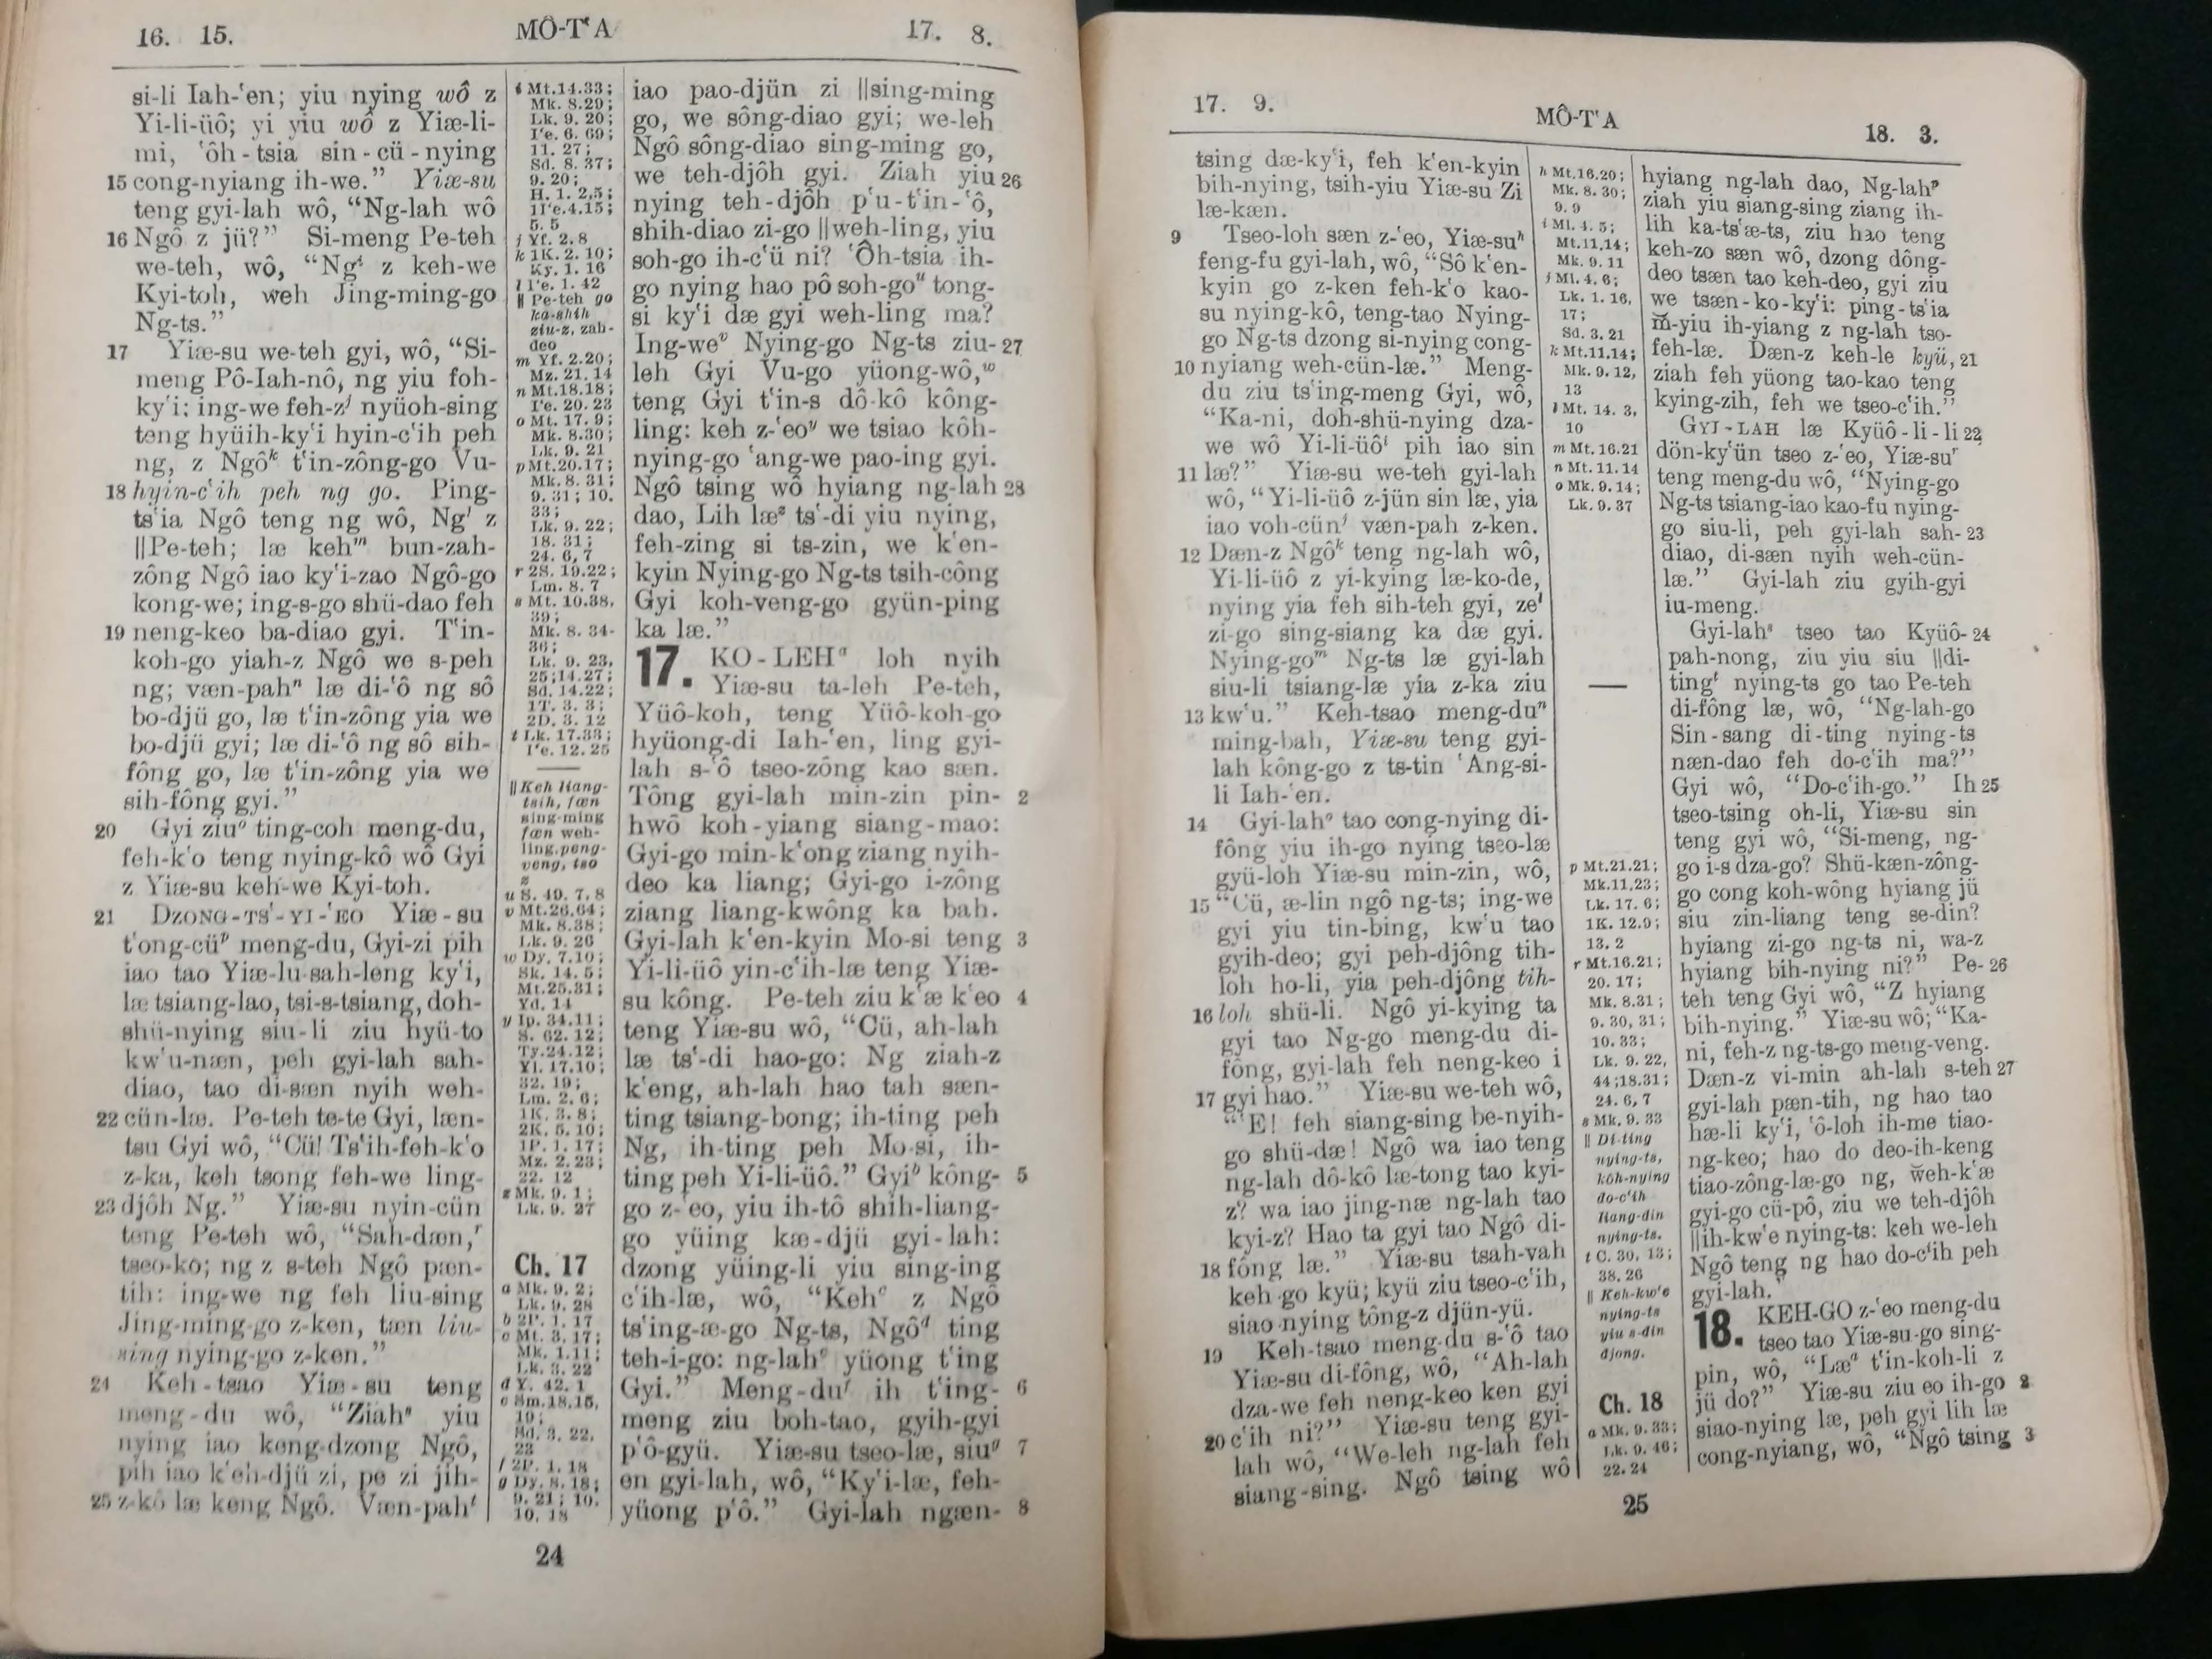 16. 15.
MÔ-TʻA
17. 8.
si-li Iah-ʻen; yiu nying wô z
Yi-li-üô; yi yiu wô z Yiæ-li-
mi, ʻôh-tsia sin-cü-nying
15 cong-nyiang ih-we.” Yiæ-su
teng gyi-lah wô, “Ng-lah wô
16 Ngô z jü?” Si-meng Pe-teh
we-teh, wô, “Ngⁱ z keh-we
Kyi-toh, weh Jing-ming-go
Ng-ts.”
17 Yiæ-su we-teh gyi, wô, “Si-
meng Pô-Iah-nô, ng yiu foh-
kyʻi: ing-we feh-zʲ nyüoh-sing
teng hyüih-kyʻi hyin-cʻih peh
ng, z Ngôᵏ tʻin-zông-go Vu-
18 hyin-cʻih peh ng go. Ping-
tsʻia Ngô teng ng wô, Ngˡ z
||Pe-teh; læ kehᵐ bun-zah-
zông Ngô iao kyʻi-zao Ngô-go
kong-we; ing-s-go shü-dao feh
19 neng-keo ba-diao gyi. Tʻin-
koh-go yiah-z Ngô we s-peh
ng; væn-pahⁿ læ di-ʻô ng sô
bo-djü go, læ tʻin-zông yia we
bo-djü gyi; læ di-ʻô ng sô sih-
fông go, læ tʻin-zông yia we
sih-fông gyi.”
20 Gyi ziuᵒ ting-coh meng-du,
feh-kʻo teng nying-kô wô Gyi
z Yiæ-su keh-we Kyi-toh.
21 DZONG-TSʻ-YI-ʻEO Yiæ-su
tʻong-cüᵖ meng-du, Gyi-zi pih
iao tao Yiæ-lu-sah-leng kyʻi,
læ tsiang-lao, tsi-s-tsiang, doh-
shü-nying siu-li ziu hyü-to
kwʻu-næn, peh gyi-lah sah-
diao, tao di-sæn nyih weh-
22 cün-læ. Pe-teh te-te Gyi, læn-
tsu Gyi wô, “Cü! Tsʻih-feh-kʻo
z-ka, keh tsong feh-we ling-
23 djôh Ng.” Yiæ-su nyin-cün
teng Pe-teh wô, “Sah-dæn,ʳ
tseo-ko; ng z s-teh Ngô pæn-
tih: ing-we ng feh liu-sing
Jing-ming-go z-ken, tæn liu-
sing nying-go z-ken.”
24 Keh-tsao Yiæ-su teng
meng-du wô, “Ziahˢ yiu
nying iao keng-dzong Ngô,
pih iao kʻeh-djü zi, pe zi jih-
25 z-kô læ keng Ngô. Væn-pahᵗ
i Mt.14.33;
Mk. 8.29;
Lk. 9. 20;
Iʻe. 6. 69;
11. 27;
Sd. 8. 37;
9. 20;
H. 1. 2,5;
1Iʻe.4.15;
5. 5
j Yf. 2. 8
k 1K. 2. 10;
Ky. 1. 16
l Iʻe. 1. 42
|| Pe-teh go
ka-shih
ziu-z, zah-
deo
m Yf. 2.20;
Mz. 21. 14
n Mt.18.18;
Iʻe. 20. 23
o Mt. 17. 9;
Mk. 8.30;
Lk. 9. 21
p Mt.20.17;
Mk. 8. 31;
9. 31; 10.
33;
Lk. 9. 22;
18. 31;
24. 6, 7
r 2S. 19.22;
Lm. 8. 7
s Mt. 10.38,
39;
Mk. 8. 34-
36;
Lk. 9. 23,
25;14.27;
Sd. 14.22;
1T. 3. 3;
2D. 3. 12
t Lk. 17.33;
Iʻe. 12. 25
|| Keh liang-
tsih, fæn
sing-ming
fæn weh-
ling, peng-
veng, tso
z
u S. 49. 7, 8
v Mt.26.64;
Mk. 8.38;
Lk. 9. 26
w Dy. 7.10;
Sk. 14. 5;
Mt.25.31;
Yd. 14
y Ip. 34.11;
S. 62. 12;
Ty.24.12;
Yl. 17.10;
32. 19;
Lm. 2. 6;
1K. 3. 8;
2K. 5. 10;
1P. 1. 17;
Mz. 2. 23;
22. 12
z Mk. 9. 1;
Lk. 9. 27
Ch. 17
a Mk. 9. 2;
Lk. 9. 28
b 2P. 1. 17
c Mt. 3. 17;
Mk. 1.11;
Lk. 3. 22
d Y. 42. 1
e Sm.18.15,
19;
Sd. 3. 22,
23
f 2P. 1. 18
g Dy. 8. 18;
9. 21; 10.
10, 18
iao pao-djün zi ||sing-ming
go, we sông-diao gyi; we-leh
Ngô sông-diao sing-ming go,
we teh-djôh gyi. Ziah yiu 26
nying teh-djôh pʻu-tʻin-ʻô,
shih-diao zi-go ||weh-ling, yiu
soh-go ih-cʻü ni? ʻÔh-tsia ih-
go nying hao pô soh-goᵘ tong-
si kyʻi dæ gyi weh-ling ma?
Ing-weᵛ Nying-go Ng-ts ziu- 27
leh Gyi Vu-go yüong-wô,ʷ
teng Gyi tʻin-s dô-kô kông-
ling: keh z-ʻeoʸ we tsiao kôh-
nying-go ʻang-we pao-ing gyi.
Ngô tsing wô hyiang ng-lah 28
dao, Lih læᶻ tsʻ-di yiu nying,
feh-zing si ts-zin, we kʻen-
kyin Nying-go Ng-ts tsih-công
Gyi koh-veng-go gyün-ping
ka læ.”
17. KO-LEHᵃ loh nyih
Yiæ-su ta-leh Pe-teh,
Yüô-koh, teng Yüô-koh-go
hyüong-di Iah-ʻen, ling gyi-
lah s-ʻô tseo-zông kao sæn.
Tông gyi-lah min-zin pin- 2
hwô koh-yiang siang-mao:
Gyi-go min-kʻong ziang nyih-
deo ka liang; Gyi-go i-zông
ziang liang-kwông ka bah.
Gyi-lah kʻen-kyin Mo-si teng 3
Yi-li-üô yin-cʻih-læ teng Yiæ-
su kông. Pe-teh ziu kʻæ kʻeo 4
teng Yiæ-su wô, “Cü, ah-lah
læ tsʻ-di hao-go: Ng ziah-z
kʻeng, ah-lah hao tah sæn-
ting tsiang-bong; ih-ting peh
Ng, ih-ting peh Mo-si, ih-
ting peh Yi-li-üô.” Gyiᵇ kông- 5
go z-ʻeo, yiu ih-tô shih-liang-
go yüing kæ-djü gyi-lah:
dzong yüing-li yiu sing-ing
cʻih-læ, wô, “Kehᶜ z Ngô
tsʻing-æ-go Ng-ts, Ngôᵈ ting
teh-i-go: ng-lahᵉ yüong tʻing
Gyi.” Meng-duᶠ ih tʻing- 6
meng ziu boh-tao, gyih-gyi
pʻô-gyü. Yiæ-su tseo-læ, siuᵍ 7
en gyi-lah, wô, “Kyʻi-læ, feh-
yüong pʻô.” Gyi-lah ngæn- 8
24
17. 9.
MÔ-TʻA
18. 3.
tsing dæ-kyʻi, feh kʻen-kyin
bih-nying, tsih-yiu Yiæ-su Zi
læ-kæn.
9 Tseo-loh sæn z-ʻeo, Yiæ-suʰ
feng-fu gyi-lah, wô, “Sô kʻen-
kyin go z-ken feh-kʻo kao-
su nying-kô, teng-tao Nying-
go Ng-ts dzong si-nying cong-
10 nyiang weh-cün-læ.” Meng-
du ziu tsʻing-meng Gyi, wô,
“Ka-ni, doh-shü-nying dza-
we wô Yi-li-üôⁱ pih iao sin
11 læ?” Yiæ-su we-teh gyi-lah
wô, “Yi-li-üô z-jün sin læ, yia
iao voh-cünʲ væn-pah z-ken.
12 Dæn-z Ngôᵏ teng ng-lah wô,
Yi-li-üô z yi-kying læ-ko-de,
nying yia feh sih-teh gyi, zeˡ
zi-go sing-siang ka dæ gyi.
Nying-goᵐ Ng-ts læ gyi-lah
siu-li tsiang-læ yia z-ka ziu
13 kwʻu.” Keh-tsao meng-duⁿ
ming-bah, Yiæ-su teng gyi-
lah kông-go z ts-tin ʻAng-si-
li Iah-ʻen.
14 Gyi-lahᵒ tao cong-nying di-
fông yiu ih-go nying tseo-læ
gyü-loh Yiæ-su min-zin, wô,
15 “Cü, æ-lin ngô ng-ts; ing-we
gyi yiu tin-bing, kwʻu tao
gyih-deo; gyi peh-djông tih-
loh ho-li, yia peh-djông tih-
16 loh shü-li. Ngô yi-kying ta
gyi tao Ng-go meng-du di-
fông, gyi-lah feh neng-keo i
17 gyi hao.” Yiæ-su we-teh wô,
“ʻE! feh siang-sing be-nyih-
go shü-dæ! Ngô wa iao teng
ng-lah dô-kô læ-tong tao kyi-
z? wa iao jing-næ ng-lah tao
kyi-z? Hao ta gyi tao Ngô di-
18 fông læ.” Yiæ-su tsah-vah
keh-go kyü; kyü ziu tseo-cʻih,
siao-nying tông-z djün-yü.
19 Keh-tsao meng-du s-ʻô tao
Yiæ-su di-fông, wô, “Ah-lah
dza-we feh neng-keo ken gyi
20 cʻih ni?” Yiæ-su teng gyi-
lah wô, “We-leh ng-lah feh
siang-sing. Ngô tsing wô
h Mt.16.20;
Mk. 8. 30;
9. 9
i Ml. 4. 5;
Mt.11.14;
Mk. 9. 11
j Ml. 4. 6;
Lk. 1. 16,
17;
Sd. 3. 21
k Mt.11.14;
Mk. 9. 12,
13
l Mt. 14. 3,
10
m Mt. 16.21
n Mt. 11. 14
o Mk. 9. 14;
Lk. 9. 37
p Mt.21.21;
Mk.11.23;
Lk. 17. 6;
1K. 12.9;
13. 2
r Mt.16.21;
20. 17;
Mk. 8.31;
9. 30, 31;
10. 33;
Lk. 9. 22,
44;18.31;
24. 6, 7
s Mk. 9. 33
|| Di-ting
nying-ts,
kôh-nying
do-cʻih
liang-din
nying-ts.
t C. 30. 13;
38. 26
|| Keh-kwʻe
nying-ts
yiu s-din
djong.
Ch. 18
a Mk. 9. 33;
Lk. 9. 46;
22. 24
hyiang ng-lah dao, Ng-lahᵖ
ziah yiu siang-sing ziang ih-
lih ka-tsʻæ-ts, ziu hao teng
keh-zo sæn wô, dzong dông-
deo tsæn tao keh-deo, gyi ziu
we tsæn-ko-kyʻi: ping-tsʻia
m̆-yiu ih-yiang z ng-lah tso-
feh-læ. Dæn-z keh-le kyü, 21
ziah feh yüong tao-kao teng
kying-zih, feh we tseo-cʻih.”
GYI-LAH læ Kyüô-li-li 22
dön-kyʻün tseo z-ʻeo, Yiæ-suʳ
teng meng-du wô, “Nying-go
Ng-ts tsiang-iao kao-fu nying-
go siu-li, peh gyi-lah sah- 23
diao, di-sæn nyih weh-cün-
læ.” Gyi-lah ziu gyih-gyi
iu-meng.
Gyi-lahˢ tseo tao Kyüô- 24
pah-nong, ziu yiu siu ||di-
tingᵗ nying-ts go tao Pe-teh
di-fông læ, wô, “Ng-lah-go
Sin-sang di-ting nying-ts
næn-dao feh do-cʻih ma?”
Gyi wô, “Do-cʻih-go.” Ih 25
tseo-tsing oh-li, Yiæ-su sin
teng gyi wô, “Si-meng, ng-
go i-s dza-go? Shü-kæn-zông-
go cong koh-wông hyiang jü
siu zin-liang teng se-din?
hyiang zi-go ng-ts ni, wa-z
hyiang bih-nying ni?” Pe- 26
teh teng Gyi wô, “Z hyiang
bih-nying.” Yiæ-su wô; “Ka-
ni, feh-z ng-ts-go meng-veng.
Dæn-z vi-min ah-lah s-teh 27
gyi-lah pæn-tih, ng hao tao
hæ-li kyʻi, ʻô-loh ih-me tiao-
ng-keo; hao do deo-ih-keng
tiao-zông-læ-go ng, w̆eh-kʻæ
gyi-go cü-pô, ziu we teh-djôh
||ih-kwʻe nying-ts: keh we-leh
Ngô teng ng hao do-cʻih peh
gyi-lah.”
18. KEH-GO z-ʻeo meng-du
tseo tao Yiæ-su-go sing-
pin, wô, “Læᵃ tʻin-koh-li z
jü do?” Yiæ-su ziu eo ih-go 2
siao-nying læ, peh gyi lih læ
cong-nyiang, wô, “Ngô tsing 3
25